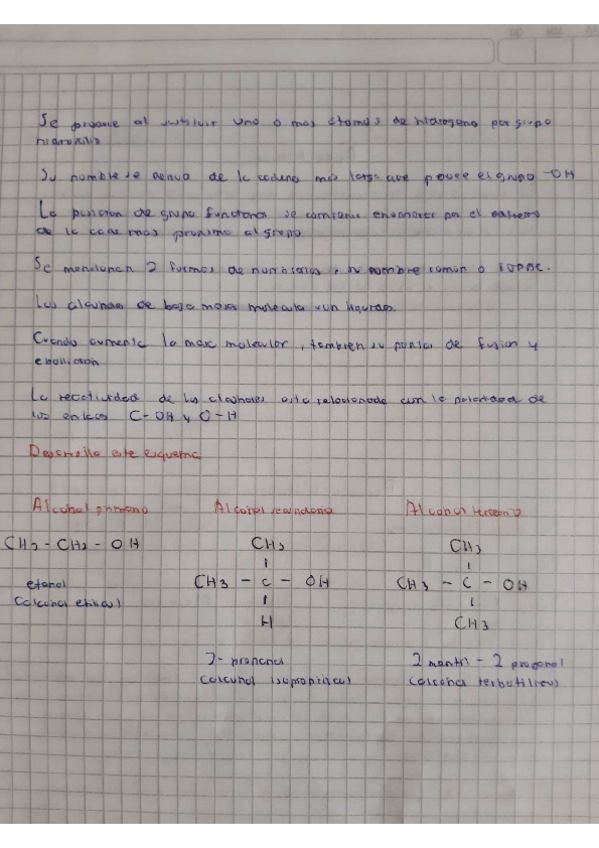 Se produce al sustituir uno o mas átomos de hidrogeno por grupo
hidroxilo
Su nombre se deriva de la cadena mas larga que posee el grupo -OH
La posicion de grupo funcional se comienza enumerar por el extremo
de la cade mas proximo al grupo
Se mencionan 2 formas de nombrarlos, su nombre común o IUPAC.
Los alcoholes de baja masa molecular son liquidos.
Cuando aumenta la masa molecular, tambien su puntos de fusion y
ebullicion
La reactividad de los alcoholes esta relacionada con la polaridad de
los enlaces C-OH y O-H
Desarrolla este esquema
Alcohol primario Alcohol secundario Alcohol terciario
CH3 - CH2 - OH CH3 CH3
CH3 - C - OH CH3 - C - OH
etanol
(alcohol etilico) H CH3
2- propanol 2 - 2 propanol
(alcohol isopropilico) (alcohol terbutilico)